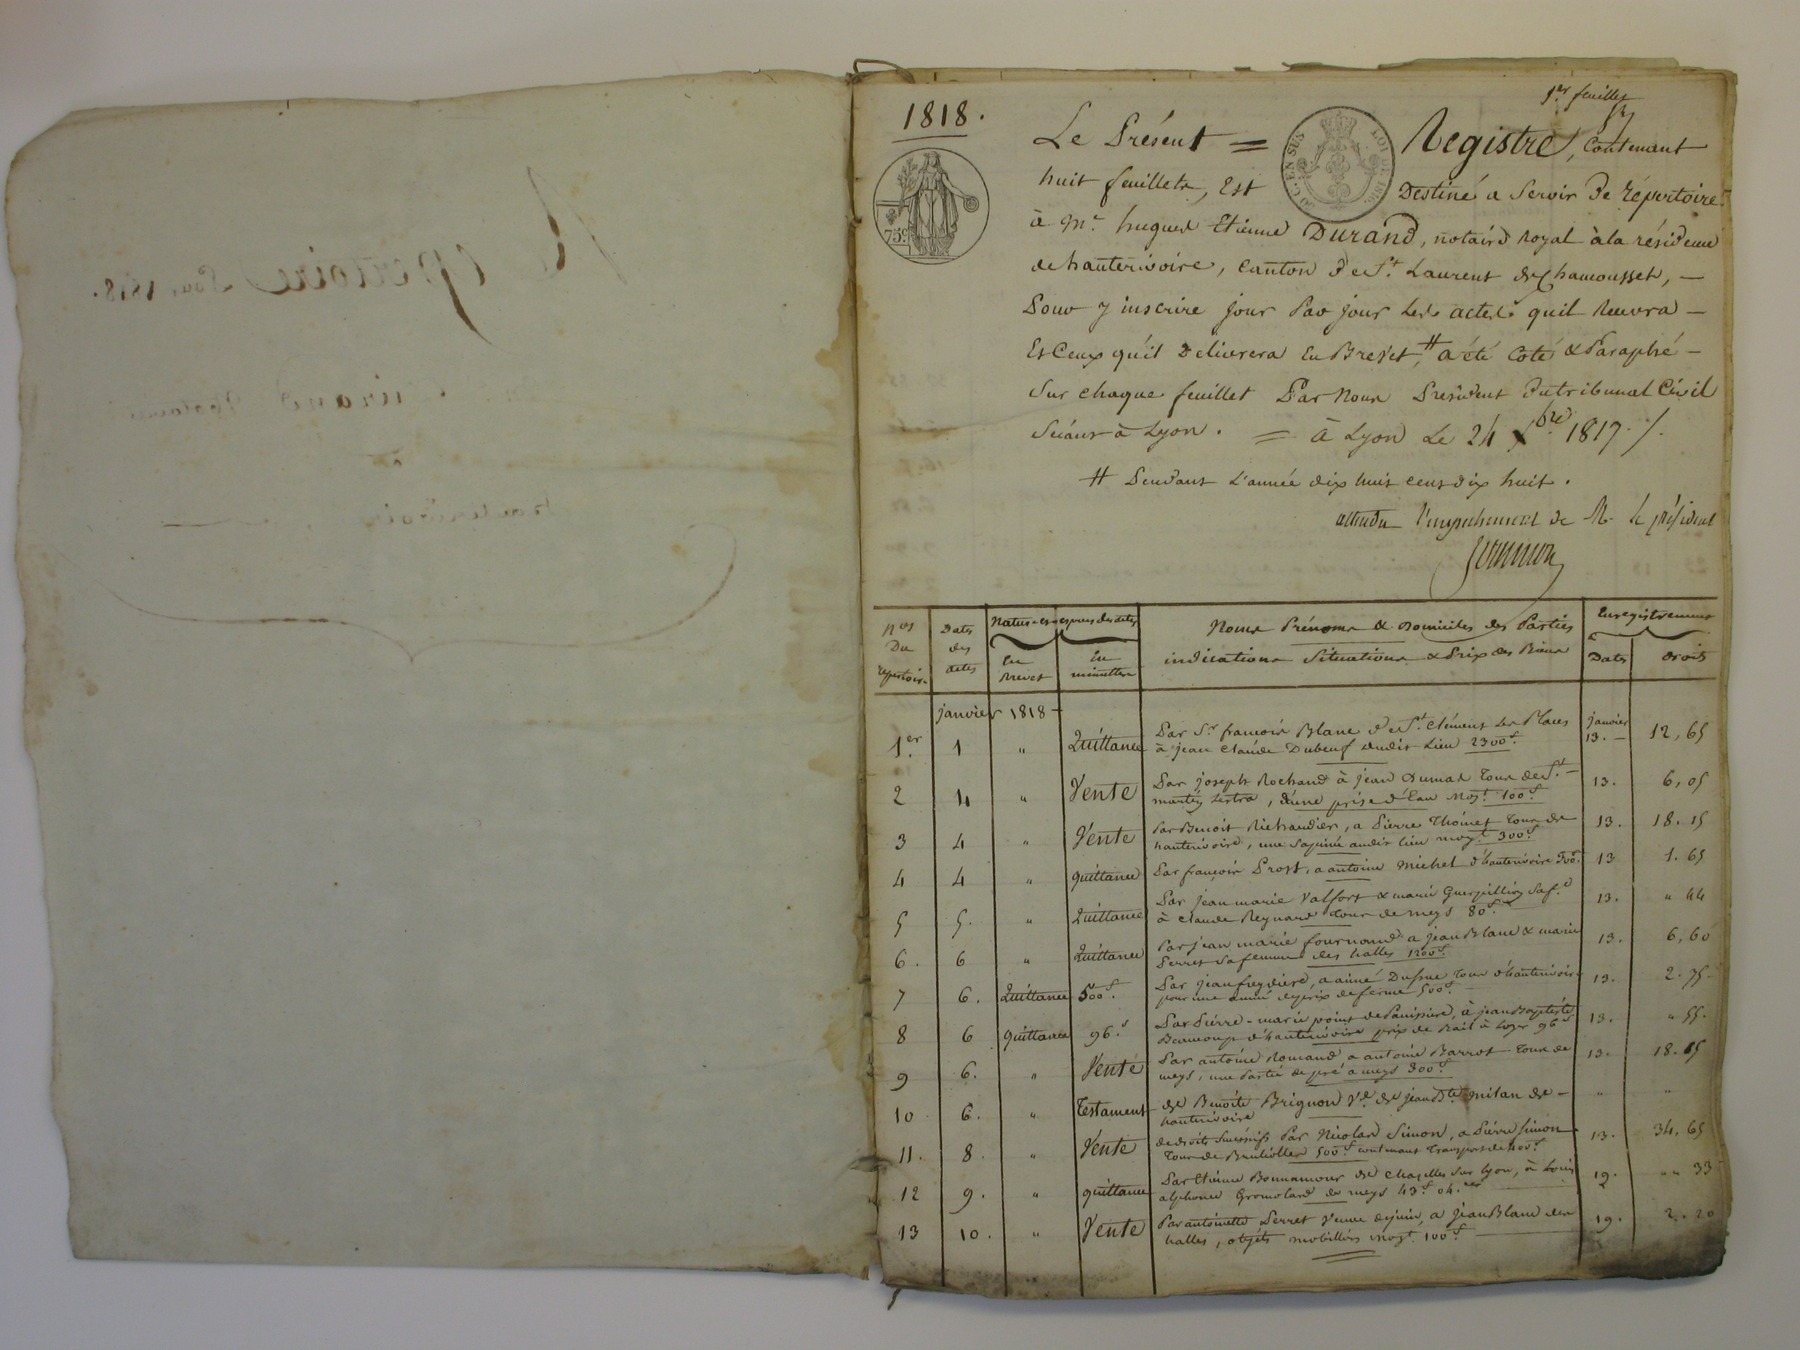 1er feuillet
1818.
75c
Le Présent = Registre, Contenant
huit feuillets, Est Destiné a Servir De Répertoire
à Mr. hugues Etienne DURAND, notaire Royal à la résidence
de hauterivoire, Canton De St. Laurent de Chamousset, —
Pour y inscrire jour Par jour Les actes quil Recevra —
Et Ceux qu'il Delivrera En Brevet, # a été Coté & Paraphé —
Sur chaque feuillet Par Nous Président du tribunal Civil
Séant à Lyon. = à Lyon Le 24 Xbre 1817 /.
# Pendant L'année dix huit cent dix huit.
attendu l'empechement de M. le président
Nos Du Répertoire
Dates des actes
Nature et especes des actes
En Brevet
En minutes
Noms Prénoms & Domiciles des Parties
indications Situations & Prix des Biens
Enregistrement
Dates
droits
janvier 1818
1er. 1 " Quittance Par Sr. francois Blanc de St. Clément Les Places janvier
à jean Claude Dubeuf dudit Lieu 2300f. 13. — 12,65
2 4 " Vente Par joseph Rochand à jean Dumas Tous de St. — 13. 6,05
martin Lestra, d'une prise d'Eau moyt. 100f.
3 4 " Vente Par Benoit Richaudier, a Pierre Thoinet Tous de 13. 18.15
hauterivoire, une Sapinée audit lieu moyt. 300f.
4 4 " quittance Par françois Prost, a antoine Michel d'hauterivoire 300f. 13 1.65
5 5. " Quittance Par jean marie Valfort & marie Saf.e 13. " 44
à Claude Reynard Tous de meys 80f.
6. 6 " Quittance Par jean marie fournand a jean Blanc & marie 13. 6,60
Perret Sa femme des halles 1200f.
7 6. Quittance 500f. Par jean, a aimé Tous d'hauterivoire 13. 2.75
pour une année de prix de ferme 500f.
8 6 quittance 96f Par Pierre-marie point de Panissière, à jean Baptiste 13. " 55.
d'hauterivoire prix de Bail à Loyer 96f
9 6. " Vente Par antoine Romand a antoine Barrot Tous de 13. 18.15
meys, une Partie de pré a meys 300f.
10 6. " Testament de Benoite Brignon Ve. de jean Bte. milan de — " "
hauterivoire
11. 8. " Vente de droits Successifs Par Nicolas Simon, a Pierre Simon 13. 34,65
Tous de Brullioles 500f. contenant Transport de 400f.
12 9. " quittance Par Etienne Bonnamour de Chazelles Sur Lyon, à Louis 19. " " 33
alphonse Gromolard de meys 43f. 04.ces
13 10. " Vente Par antoinette Perret Veuve dejuin, a jean Blanc des 19. 2.20
halles, objets mobilliers moyt. 100f.